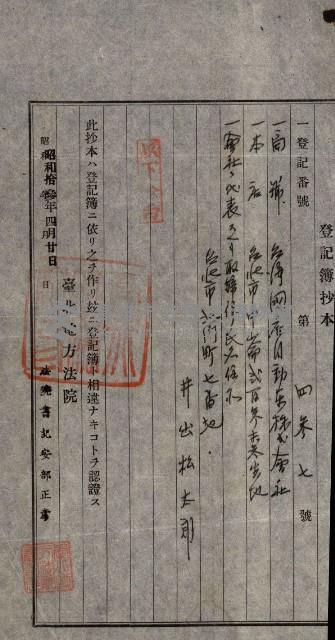 登記簿抄本
一登記番號 第四參七號
一商號 台灣國産自動車株式會社
一本店 台北市
一會社ヲ代表スベキ取締役ノ氏名住所
台北市 町七番地
井出松太郎
以下余白
此抄本ハ登記簿ニ依リ之ヲ作リ茲ニ登記簿ト相違ナキコトヲ認證ス
昭和拾參年四月廿日
臺北地方法院
法院書記安部正